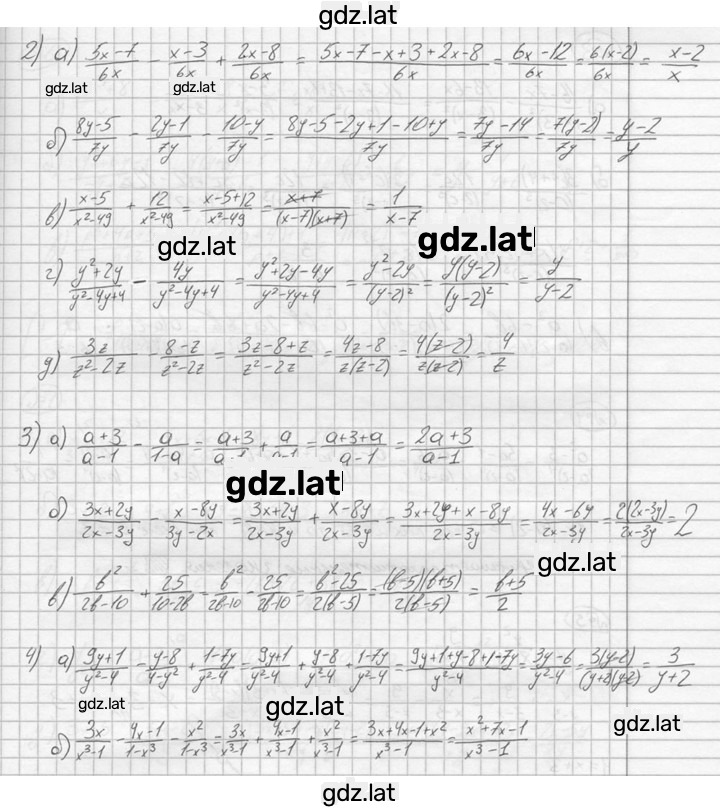 gdz.lat
2) а) (5x-7)/(6x) - (x-3)/(6x) + (2x-8)/(6x) = (5x-7-x+3+2x-8)/(6x) = (6x-12)/(6x) = 6(x-2)/(6x) = (x-2)/x
gdz.lat gdz.lat
б) (8y-5)/(7y) - (2y-1)/(7y) - (10-y)/(7y) = (8y-5-2y+1-10+y)/(7y) = (7y-14)/(7y) = 7(y-2)/(7y) = (y-2)/y
в) (x-5)/(x²-49) + 12/(x²-49) = (x-5+12)/(x²-49) = (x+7)/((x-7)(x+7)) = 1/(x-7)
gdz.lat gdz.lat
г) (y²+2y)/(y²-4y+4) - 4y/(y²-4y+4) = (y²+2y-4y)/(y²-4y+4) = (y²-2y)/(y-2)² = y(y-2)/(y-2)² = y/(y-2)
д) 3z/(z²-2z) - (8-z)/(z²-2z) = (3z-8+z)/(z²-2z) = (4z-8)/(z(z-2)) = 4(z-2)/(z(z-2)) = 4/z
3) а) (a+3)/(a-1) - a/(1-a) = (a+3)/(a-1) + a/(a-1) = (a+3+a)/(a-1) = (2a+3)/(a-1)
gdz.lat
б) (3x+2y)/(2x-3y) - (x-8y)/(3y-2x) = (3x+2y)/(2x-3y) + (x-8y)/(2x-3y) = (3x+2y+x-8y)/(2x-3y) = (4x-6y)/(2x-3y) = 2(2x-3y)/(2x-3y) = 2
gdz.lat
в) b²/(2b-10) + 25/(10-2b) = b²/(2b-10) - 25/(2b-10) = (b²-25)/(2(b-5)) = (b-5)(b+5)/(2(b-5)) = (b+5)/2
4) а) (9y+1)/(y²-4) - (y-8)/(4-y²) + (1-7y)/(y²-4) = (9y+1)/(y²-4) + (y-8)/(y²-4) + (1-7y)/(y²-4) = (9y+1+y-8+1-7y)/(y²-4) = (3y-6)/(y²-4) = 3(y-2)/((y+2)(y-2)) = 3/(y+2)
gdz.lat gdz.lat gdz.lat
б) 3x/(x³-1) - (4x-1)/(1-x³) - x²/(1-x³) = 3x/(x³-1) + (4x-1)/(x³-1) + x²/(x³-1) = (3x+4x-1+x²)/(x³-1) = (x²+7x-1)/(x³-1)
gdz.lat